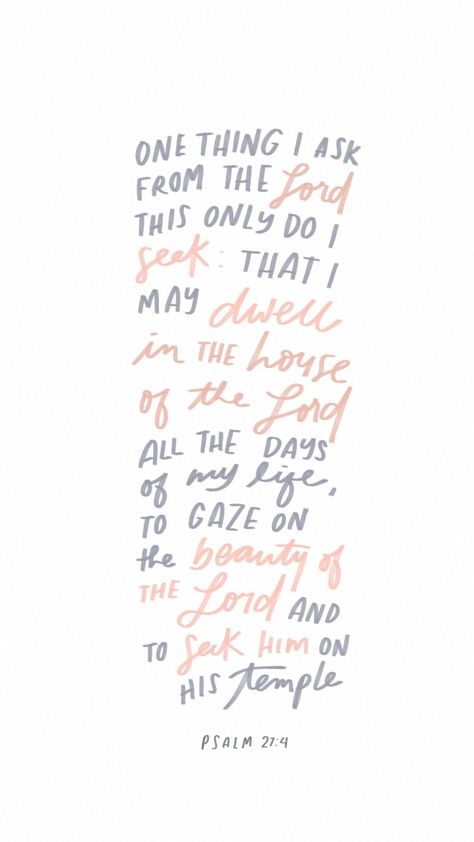 ONE THING I ASK
FROM THE Lord
THIS ONLY DO I
seek: THAT I
MAY dwell
in THE house
of the Lord
ALL THE DAYS
of my life,
TO GAZE ON
the beauty of
THE Lord AND
TO Seek HIM ON
HIS temple
PSALM 27:4